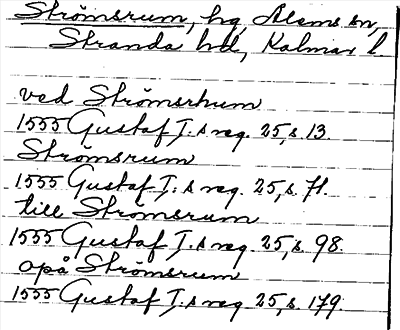 Strömsrum, hg, Ålems sn,
Stranda hd, Kalmar l
ved Strömsrhum
1555 Gustaf I:s reg. 25, s. 13.
Strömsrum
1555 Gustaf I:s reg. 25, s. 71.
till Strömsrum
1555 Gustaf I:s reg. 25, s. 98.
opå Strömsrum
1555 Gustaf I:s reg. 25, s. 179.